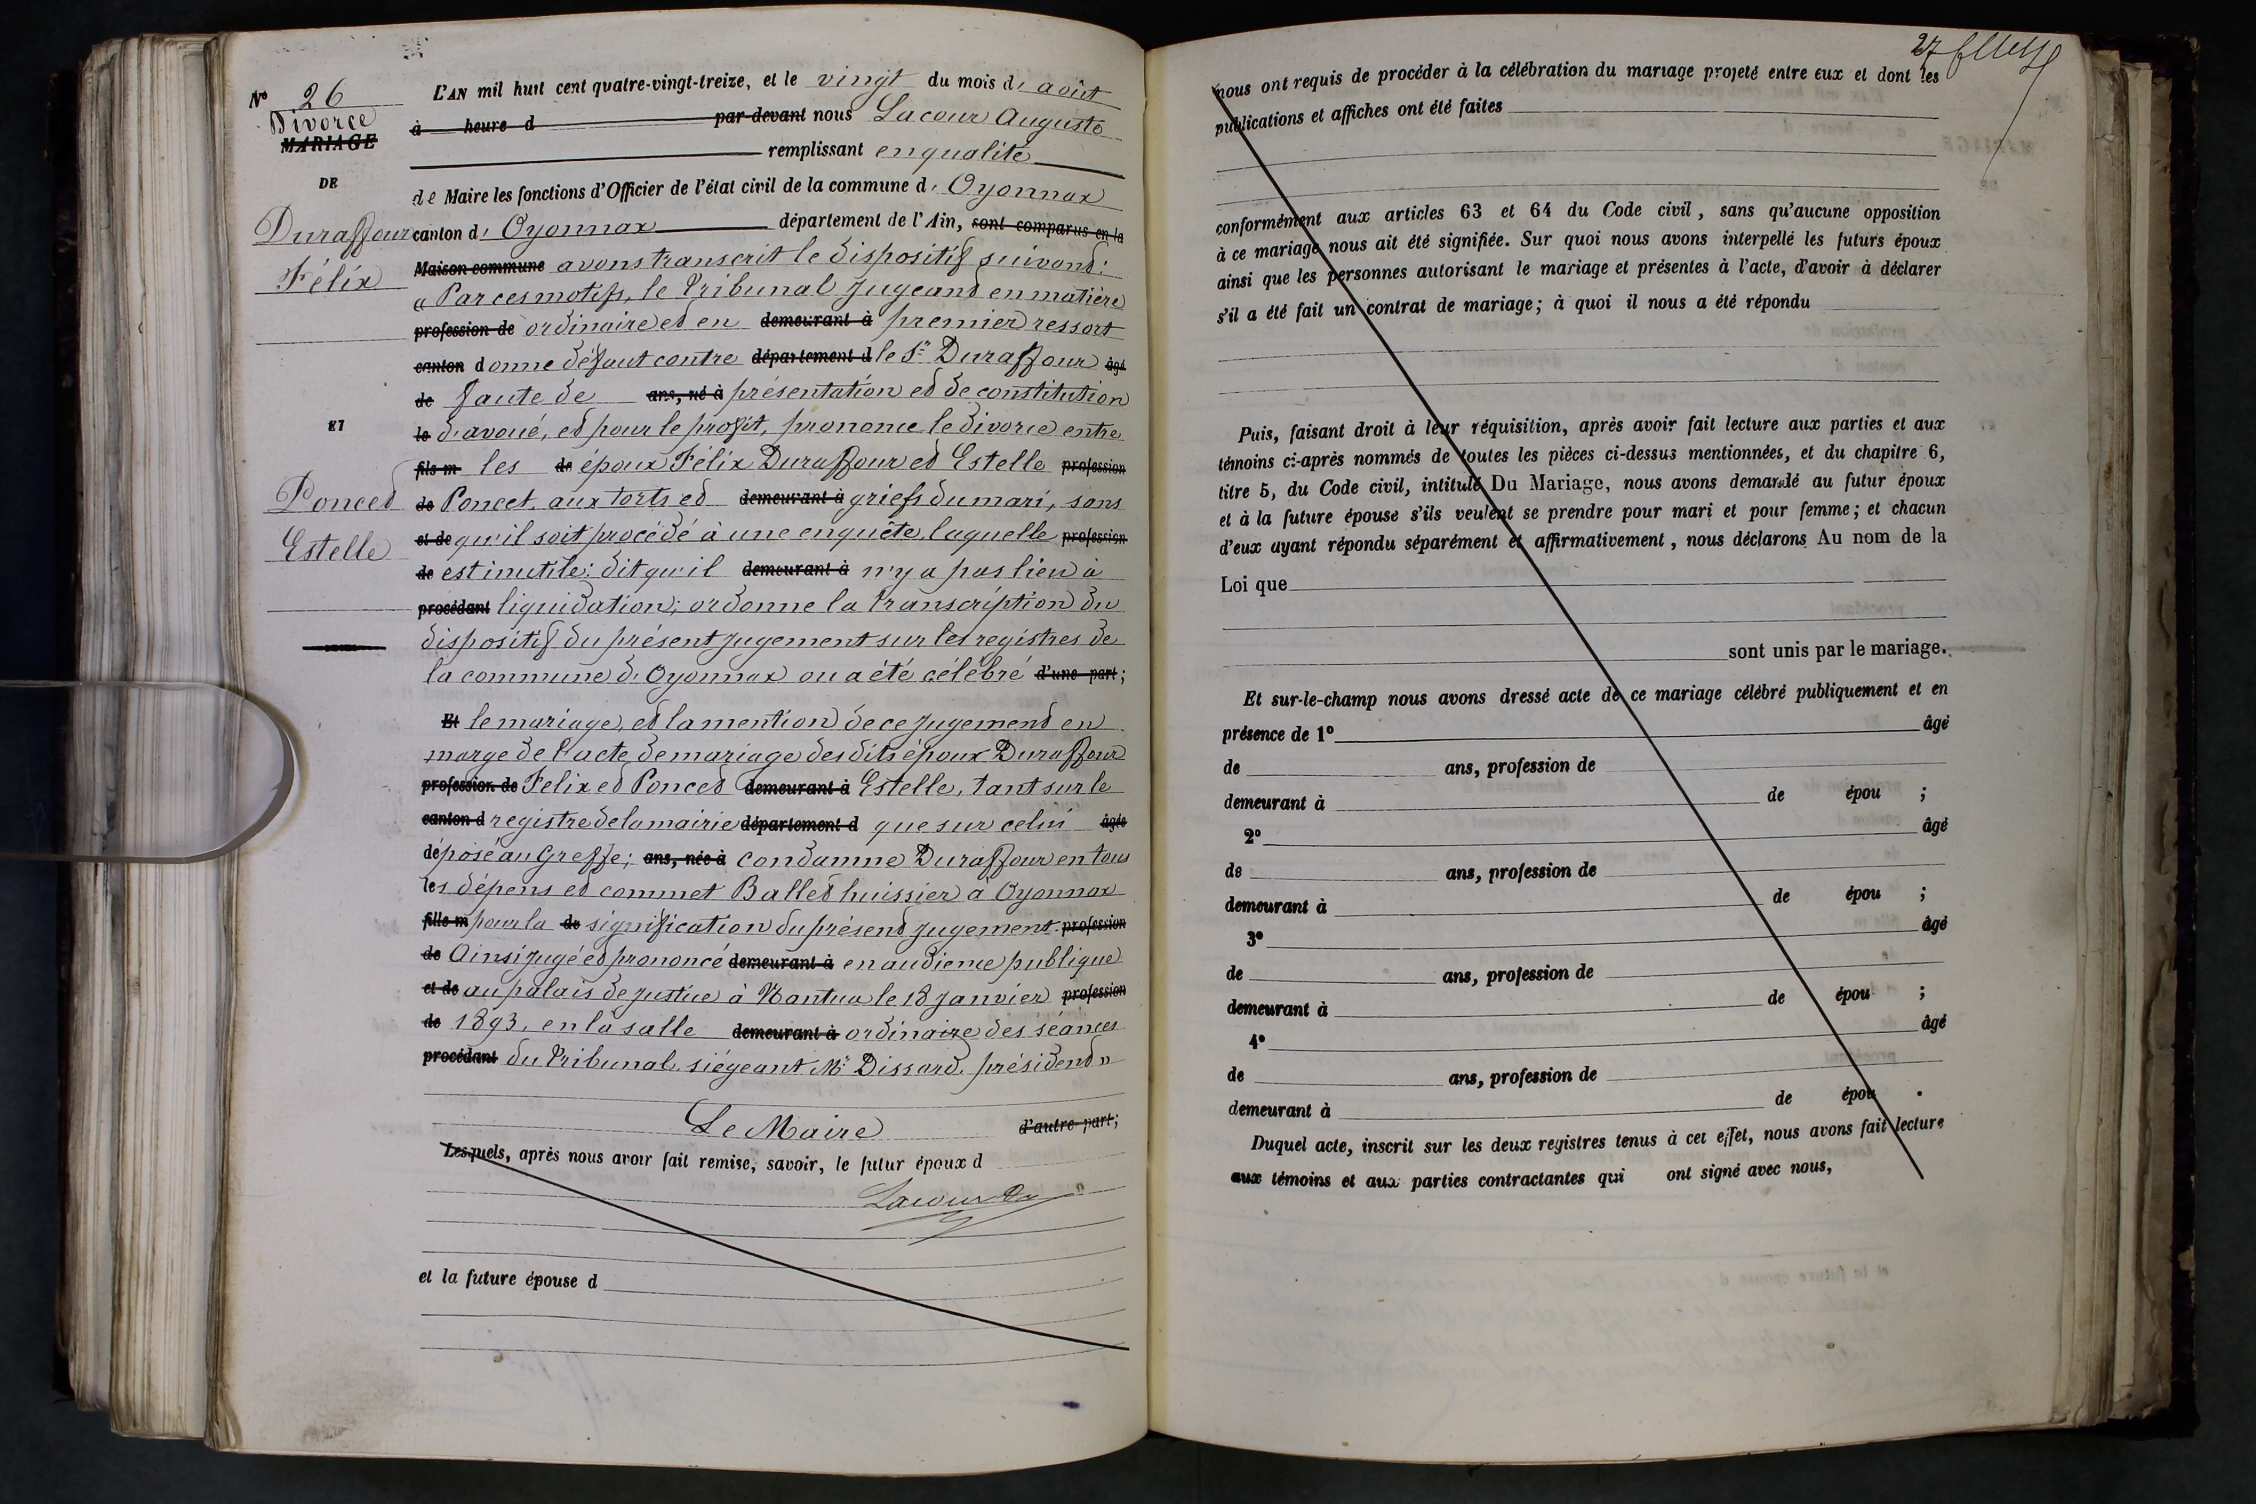 No 26
Divorce
MARIAGE
DE
Duraffour
Félix
ET
Poncet
Estelle
L'AN mil huit cent quatre-vingt-treize, et le vingt du mois d'août
à heure d par-devant nous Lacour Auguste
remplissant en qualité
de Maire les fonctions d'Officier de l'état civil de la commune d'Oyonnax
canton d'Oyonnax département de l'Ain, sont comparus en la
Maison commune avons transcrit le dispositif suivant:
"Par ces motifs, le Tribunal jugeant en matière
profession de ordinaire et en demeurant à premier ressort
canton donne défaut contre département d le Sr Duraffour âgé
de faute de ans, né à présentation et de constitution
le d'avoué, et pour le profit, prononce le divorce entre
fils m les de époux Félix Duraffour et Estelle profession
de Poncet, aux torts et demeurant à griefs du mari, sans
et de qu'il soit procédé à une enquête, laquelle profession
de est inutile; dit qu'il demeurant à n'y a pas lieu à
procédant liquidation; ordonne la transcription du
dispositif du présent jugement sur les registres de
la commune d'Oyonnax ou a été célébré d'une part;
Et le mariage, et la mention de ce jugement en
marge de l'acte de mariage des dits époux Duraffour
profession de Felix et Poncet demeurant à Estelle, tant sur le
canton d registre de la mairie département d que sur celui âgée
déposé au Greffe; ans, née à condamne Duraffour en tous
les dépens et commet Ballet huissier à Oyonnax
fille m pour la de signification du présent jugement. profession
de Ainsi jugé et prononcé demeurant à en audience publique
et de au palais de justice à Nantua le 18 janvier profession
de 1893, en la salle demeurant à ordinaire des séances
procédant du Tribunal, siégeant Mr Dissard, président"
Le Maire d'autre part;
Lesquels, après nous avoir fait remise, savoir, le futur époux d
Lacour
et la future épouse d
27
nous ont requis de procéder à la célébration du mariage projeté entre eux et dont les
publications et affiches ont été faites
conformément aux articles 63 et 64 du Code civil, sans qu'aucune opposition
à ce mariage nous ait été signifiée. Sur quoi nous avons interpellé les futurs époux
ainsi que les personnes autorisant le mariage et présentes à l'acte, d'avoir à déclarer
s'il a été fait un contrat de mariage; à quoi il nous a été répondu
Puis, faisant droit à leur réquisition, après avoir fait lecture aux parties et aux
témoins ci-après nommés de toutes les pièces ci-dessus mentionnées, et du chapitre 6,
titre 5, du Code civil, intitulé Du Mariage, nous avons demandé au futur époux
et à la future épouse s'ils veulent se prendre pour mari et pour femme; et chacun
d'eux ayant répondu séparément et affirmativement, nous déclarons Au nom de la
Loi que
sont unis par le mariage.
Et sur-le-champ nous avons dressé acte de ce mariage célébré publiquement et en
présence de 1o âgé
de ans, profession de
demeurant à de épou ;
2o âgé
de ans, profession de
demeurant à de épou ;
3o âgé
de ans, profession de
demeurant à de épou ;
4o âgé
de ans, profession de
demeurant à de épou .
Duquel acte, inscrit sur les deux registres tenus à cet effet, nous avons fait lecture
aux témoins et aux parties contractantes qui ont signé avec nous,